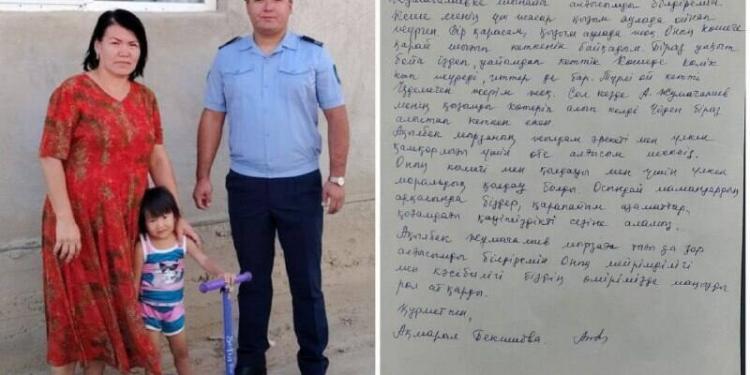 Жұмағалиевке шынайы алғысымды білдіремін.
Кеше менің үш жасар қызым аулада ойнап
жүрген. Бір қарасам, қызым аулада жоқ. Оның көшеге
қарай шығып кеткенін байқадым. Біраз уақыт
бойы іздеп, уайымдап кеттік. Көшеде көлік
көп жүреді, иттер де бар. Түрлі ой кетті.
Іздемеген жерім жоқ. Сол кезде А. Жұмағалиев
менің қызымды көтеріп алып келді. Үйден біраз
алыстап кеткен екен.
Ақылбек мырзаның жылдам әрекеті мен үлкен
қамқорлығы үшін өте алғысым шексіз.
Оның көмегі мен қолдауы мен үшін үлкен
моральдық қолдау болды. Осындай мамандардың
арқасында біздер, қарапайым адамдар,
қоғамдағы қауіпсіздікті сезіне аламыз.
Ақылбек Жұмағалиев мырзаға тағы да зор
алғысымды білдіремін. Оның мейірімділігі
мен кәсібилігі біздің өмірімізде маңызды
рол атқарды.
Құрметпен,
Ақмарал Бекишева.